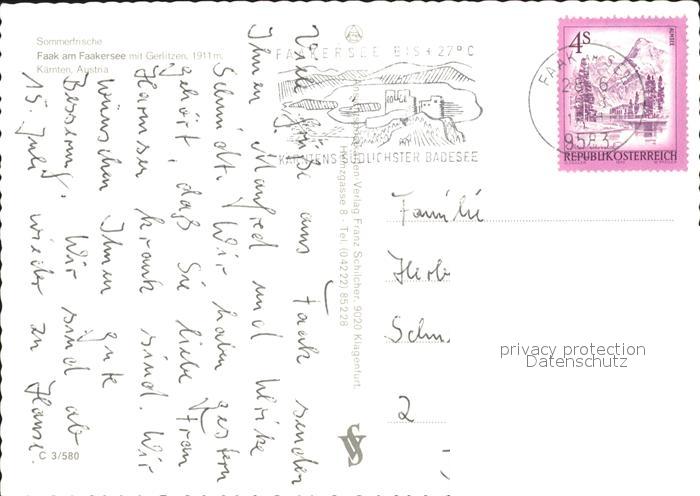 Sommerfrische
Faak am Faakersee mit Gerlitzen, 1911m,
Kärnten, Austria
FAAKERSEE BIS +27°C
KÄRNTENS SÜDLICHSTER BADESEE
FAAK AM
9583
4s
ALMSEE
REPUBLIK ÖSTERREICH
Viele Grüße aus Faak senden
Ihnen Manfred und Ulrike
Schmidt. Wir haben gestern
gehört, daß Sie liebe Frau
krank sind. Wir
wünschen Ihnen gute
Besserung. Wir sind ab
15. Juli wieder zu Hause.
Ansichtskarten-Verlag Franz Schilcher, 9020 Klagenfurt,
8 - Tel. (04222) 85228
Familie
Herb
Schm
2
privacy protection
Datenschutz
C 3/580